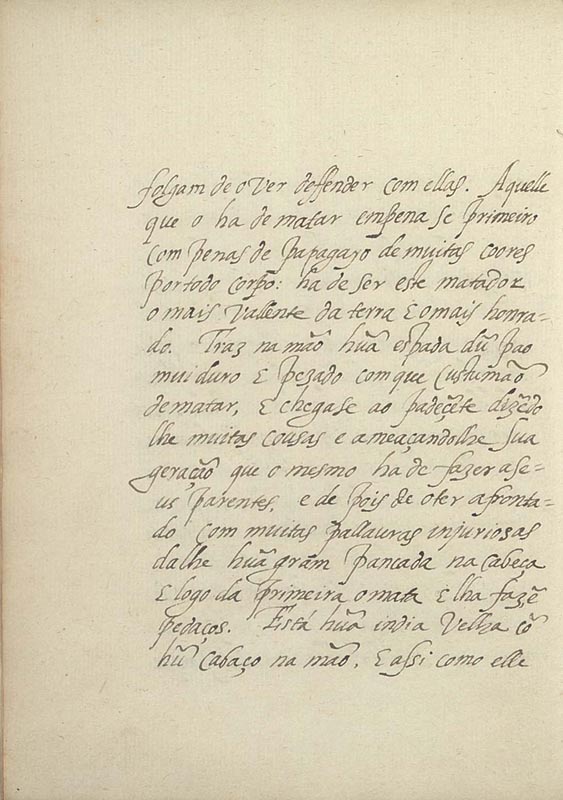 folgam de o ver deffender com ellas. Aquelle
que o ha de matar empena se primeiro
com penas de papagayo de muitas coores
por todo corpo: ha de ser este matador
o mais vallente da terra E o mais honra=
do. Traz na mão hũa espada dũ pao
mui duro E pezado com que custumão
de matar, E chegase ao padeçẽte dizẽdo
lhe muitas cousas e ameaçandolhe sua
geração que o mesmo ha de fazer a se=
us parentes, e de pois de o ter afronta=
do com muitas pallauras injuriosas
dalhe hũa gram pancada na cabeça
E logo da primeira o mata E lha fazẽ
pedaços. Está hũa india velha cõ
hũ cabaço na mão, E assi como elle